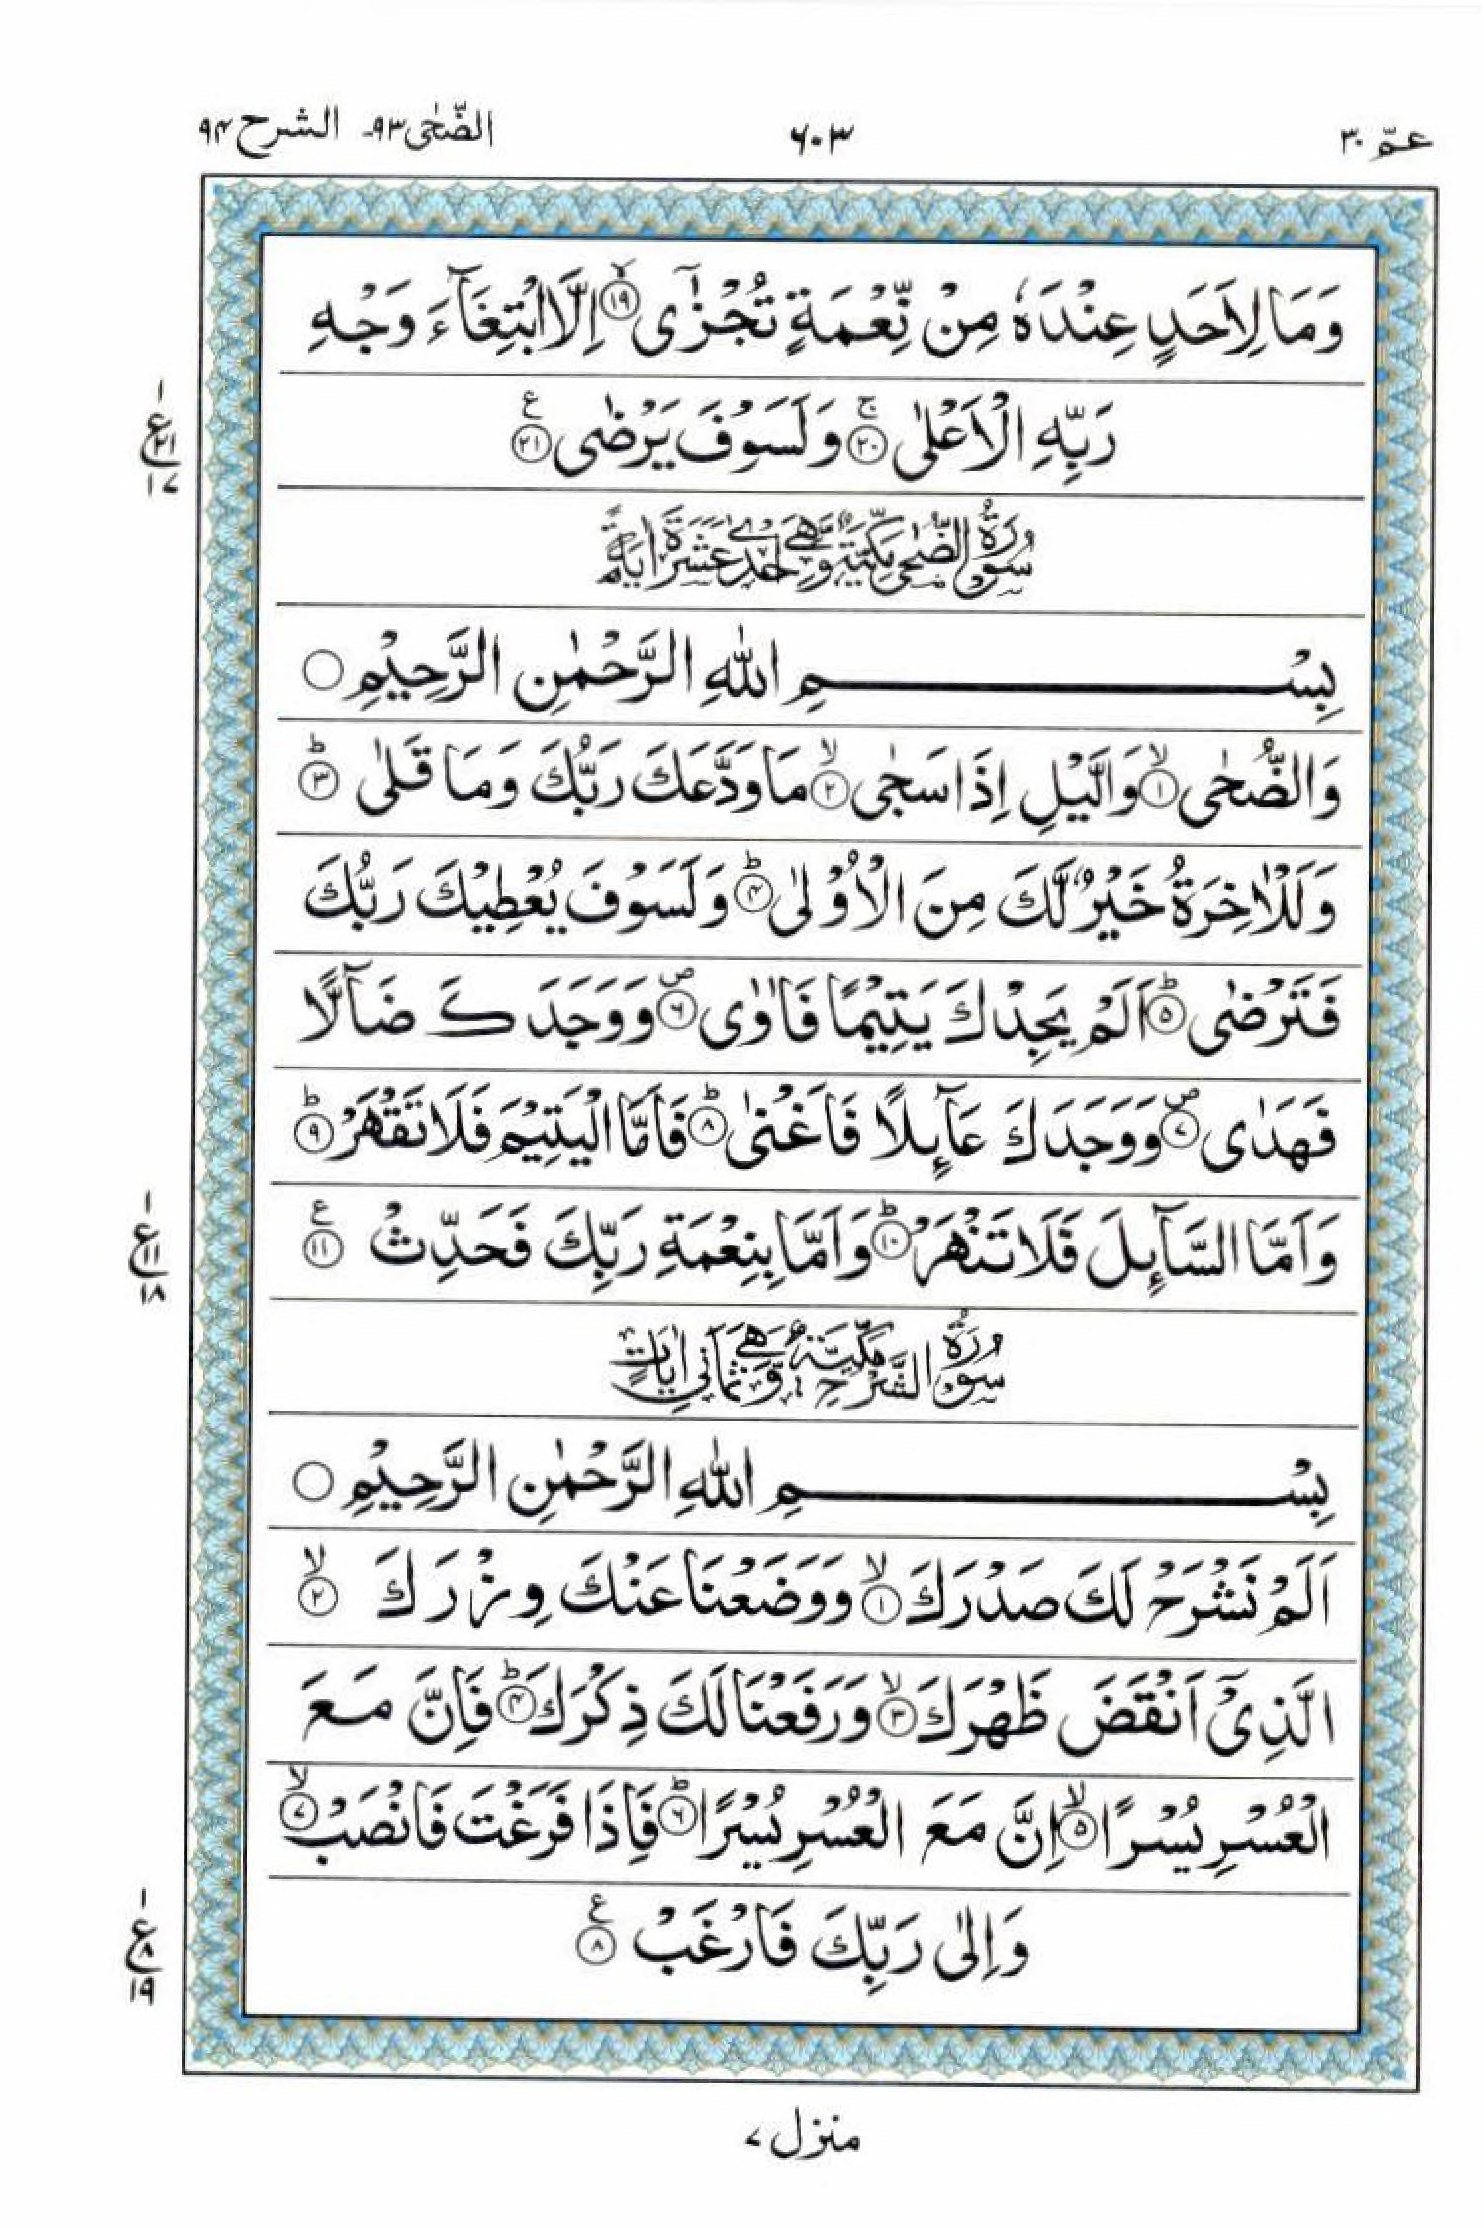 عمّ ٣٠ ٦٠٣ الضّحٰى ٩٣ـ الشرح ٩٤
وَمَا لِاَحَدٍ عِنْدَهٗ مِنْ نِّعْمَةٍ تُجْزٰٓى ۙ‏﴿۱۹﴾ اِلَّا ابْتِغَآءَ وَجْهِ
رَبِّهِ الْاَعْلٰى‌ۚ‏﴿۲۰﴾ وَلَسَوْفَ يَرْضٰى ﴿۲۱﴾ ع
١ ع ٢١ ١٧
سُوْرَةُ الضُّحٰى مَكِّيَّةٌ وَّهِيَ اِحْدٰى عَشَرَةَ اٰيَةً
بِسْمِ اللهِ الرَّحْمٰنِ الرَّحِيْمِ
وَالضُّحٰى ۙ‏﴿۱﴾ وَالَّيْلِ اِذَا سَجٰى ۙ‏﴿۲﴾ مَا وَدَّعَكَ رَبُّكَ وَمَا قَلٰى ؕ‏﴿۳﴾
وَلَلْاٰخِرَةُ خَيْرٌ لَّكَ مِنَ الْاُوْلٰى ؕ‏﴿۴﴾ وَلَسَوْفَ يُعْطِيْكَ رَبُّكَ
فَتَرْضٰى ؕ‏﴿۵﴾ اَلَمْ يَجِدْكَ يَتِيْمًا فَاٰوٰى ص﴿۶﴾ وَوَجَدَكَ ضَآلًّا
فَهَدٰى ص﴿۷﴾ وَوَجَدَكَ عَآئِلًا فَاَغْنٰى ؕ‏﴿۸﴾ فَاَمَّا الْيَتِيْمَ فَلَا تَقْهَرْ ؕ‏﴿۹﴾
وَاَمَّا السَّآئِلَ فَلَا تَنْهَرْ ؕ‏﴿۱۰﴾ وَاَمَّا بِنِعْمَةِ رَبِّكَ فَحَدِّثْ ﴿۱۱﴾ ع
١ ع ١١ ١٨
سُوْرَةُ الشَّرْحِ مَكِّيَّةٌ وَّهِيَ ثَمَانِيْ اٰيَاتٍ
بِسْمِ اللهِ الرَّحْمٰنِ الرَّحِيْمِ
اَلَمْ نَشْرَحْ لَكَ صَدْرَكَ ۙ‏﴿۱﴾ وَوَضَعْنَا عَنْكَ وِزْرَكَ ۙ‏﴿۲﴾
الَّذِىْٓ اَنْقَضَ ظَهْرَكَ ۙ‏﴿۳﴾ وَرَفَعْنَا لَكَ ذِكْرَكَ ؕ‏﴿۴﴾ فَاِنَّ مَعَ
الْعُسْرِ يُسْرًا ۙ‏﴿۵﴾ اِنَّ مَعَ الْعُسْرِ يُسْرًا ؕ‏﴿۶﴾ فَاِذَا فَرَغْتَ فَانْصَبْ ۙ‏﴿۷﴾
وَاِلٰى رَبِّكَ فَارْغَبْ ﴿۸﴾ ع
١ ع ٨ ١٩
منزل ٧